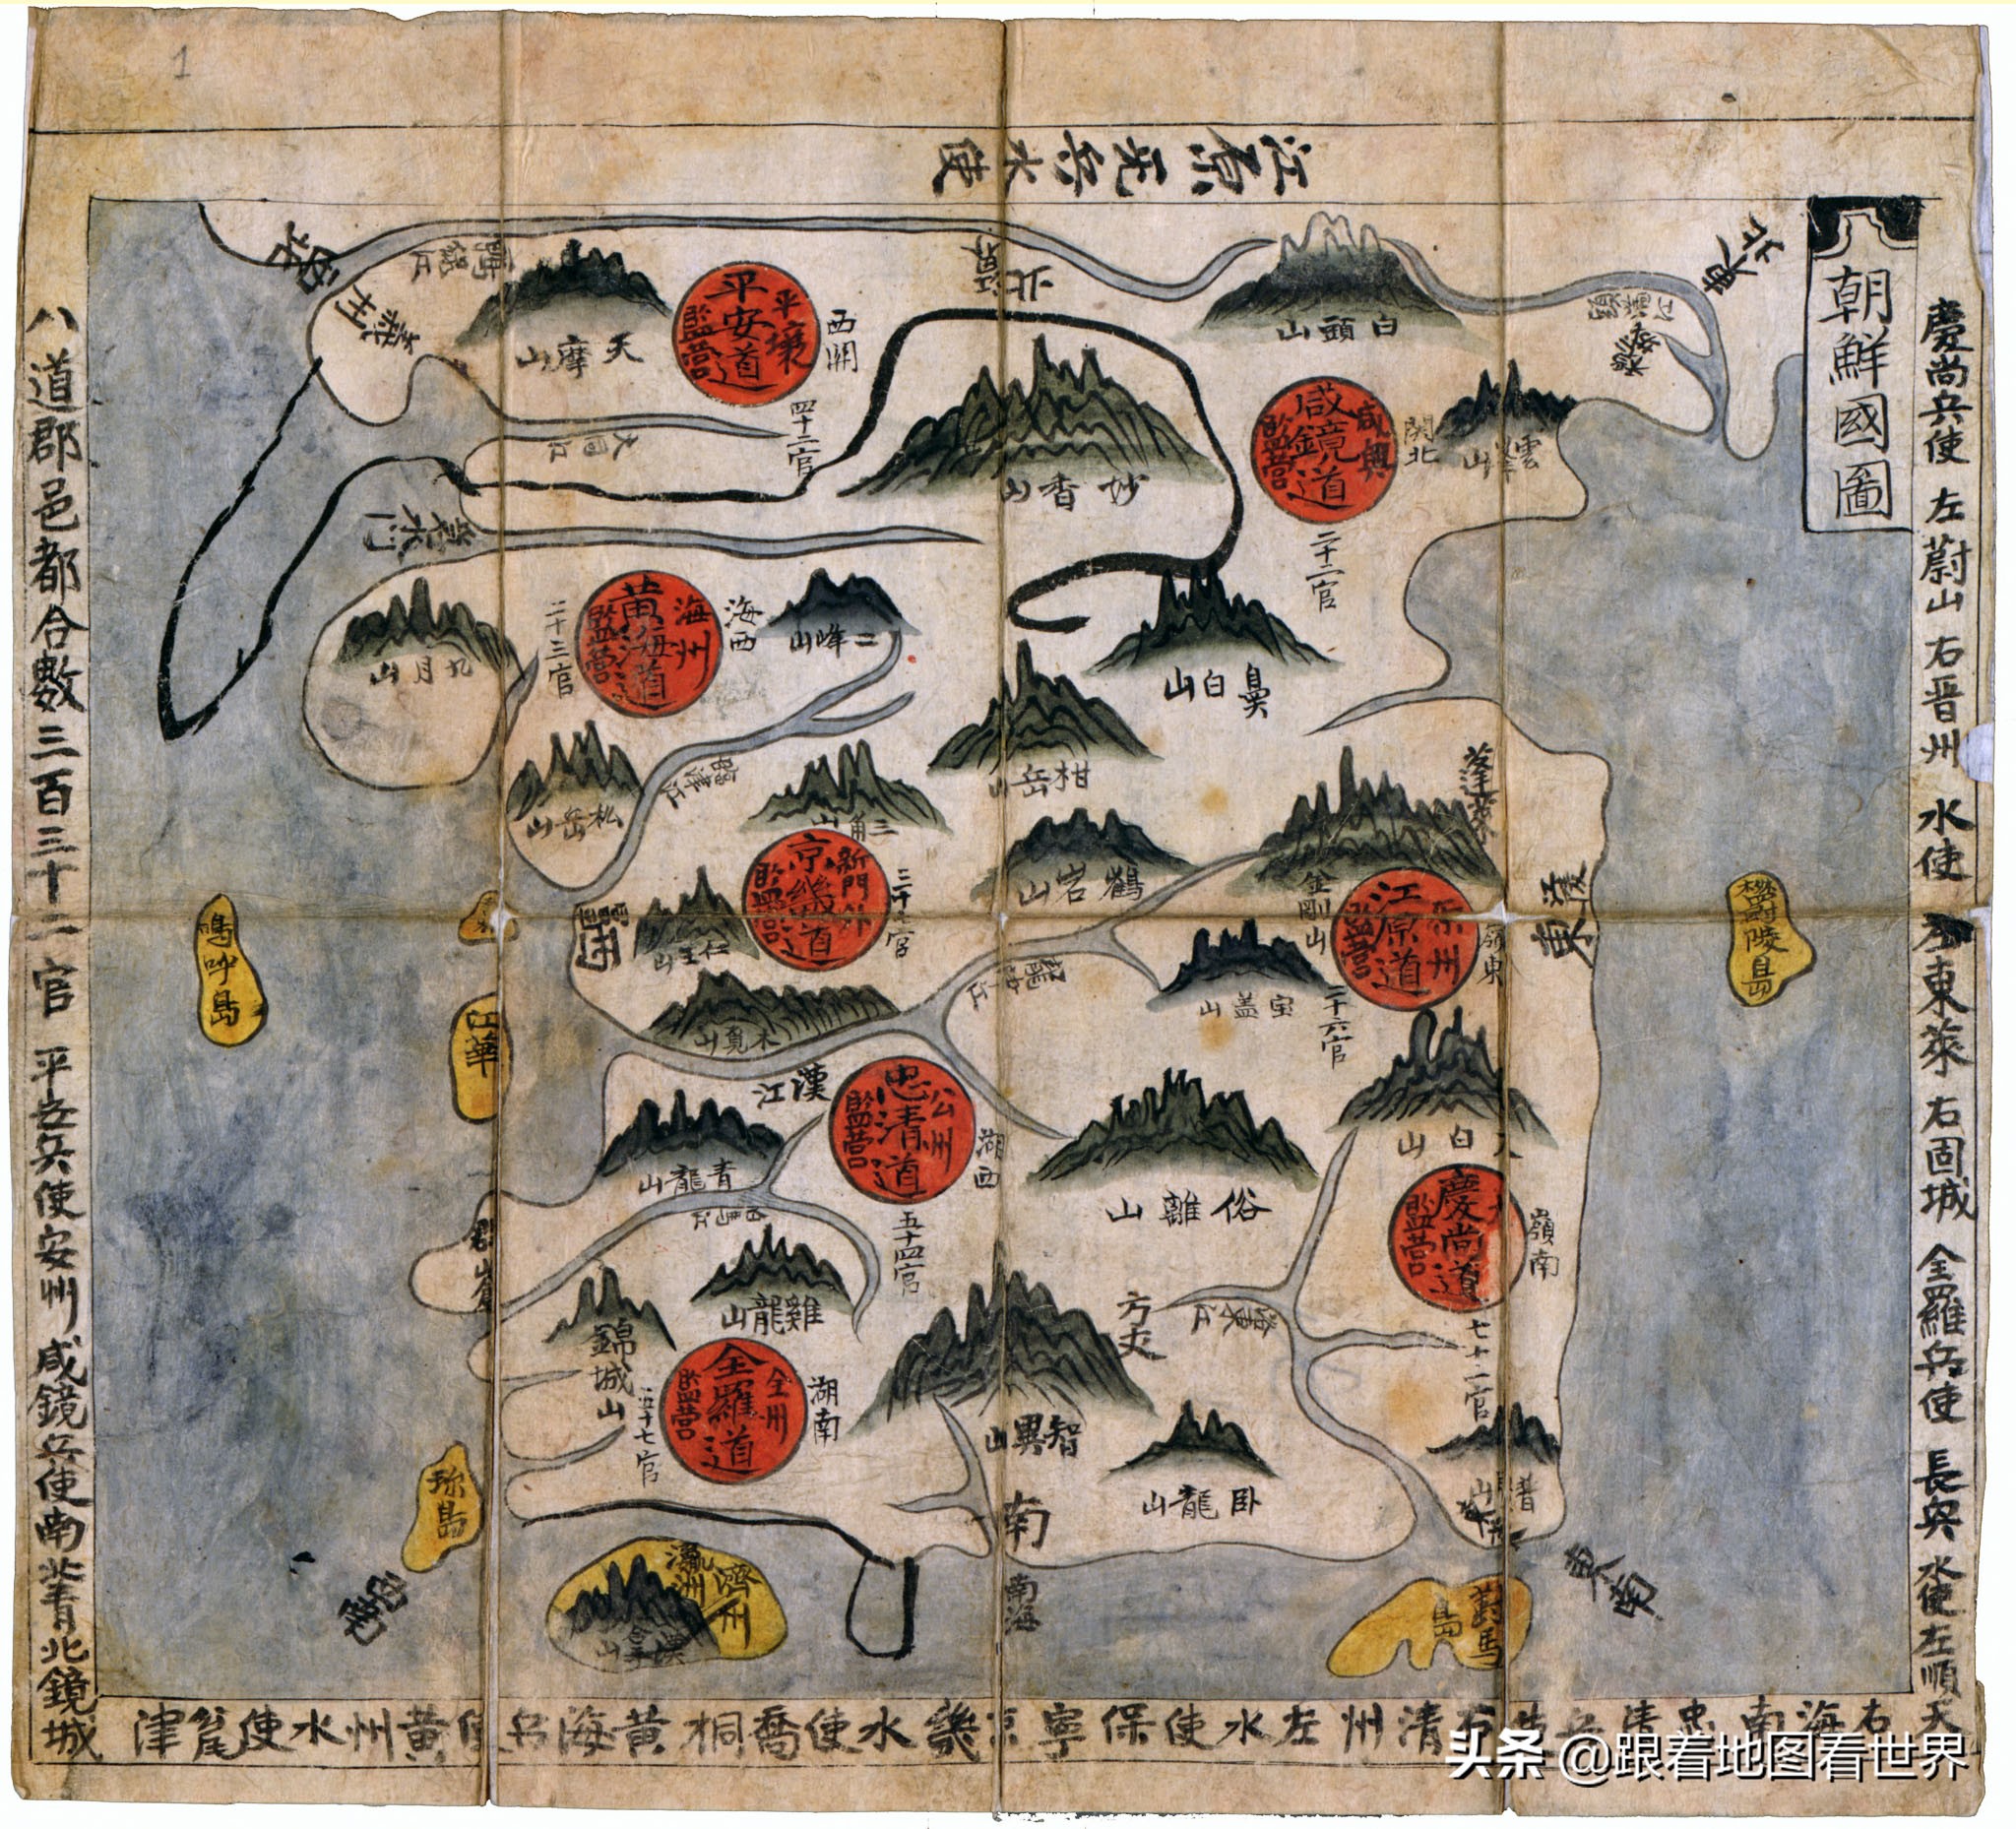 1
江原兵水使
朝鮮國圖
慶尚兵使 左蔚山 右晋州 水使 左東萊 右固城 全羅兵使 長興 水使左順天
右海南 忠清兵使 清州 左水使保寧 京畿水使喬桐 黄海兵使黄州水使瓮津
八道郡邑都合數三百三十二官 平安兵使安州 咸鏡兵使南北青北鏡城
鴨綠江
義州
天摩山
平安道
平壤
監营
西関
四十二官
大同江
白頭山
妙香山
咸鏡道
咸興
監营
関北
二十二官
鼻白山
黄海道
海州
監营
海西
二十三官
九月山
二峰山
松岳山
臨津江
紺岳山
三角山
京畿道
新門外
監营
仁王山
木覓山
鶴岩山
蓬萊
金剛山
江原道
原州
監营
嶺東
二十六官
江陵
東
宝盖山
漢江
忠清道
公州
監营
湖西
五十四官
青龍山
俗離山
太白山
慶尚道
監营
嶺南
七十一官
洛東江
方丈
雞龍山
錦城山
全羅道
全州
監营
湖南
五十七官
智異山
臥龍山
南
南海
東南
瀛洲
濟州
對馬島
江華
珍島
鬱陵島
頭条 @跟着地图看世界